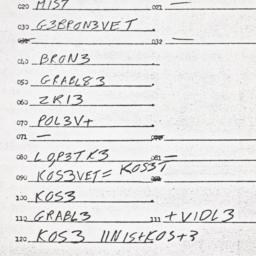 020 MIST 021 —
030 G3BRON3VET
032 —
040 BRON3
050 GRABL83
060 ZRI3
070 POL3V+
071 —
080 LOP3TK3 081 —
090 KOS3VET= KOS3T
100 KOS3
110 GRABL3 111 +VIDL3
120 KOS3 IINIS+KOS+3